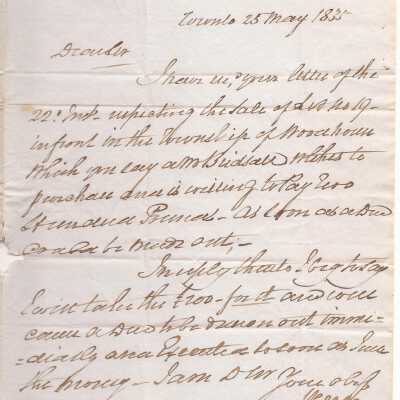 Toronto 25 May 1835
Dear Sir
I have rec,d your letter of the
22.d Inst. respecting the sale of Lot No 19
in front in the Township of
which you say a Mr wishes to
purchase and is willing to Pay Two
Hundred Pounds - as soon as a Deed
could be made out, -
In reply thereto I beg to say
I will take the £200 - for it and will
cause a Deed to be drawn out imme=
=diately and Executed so soon as I see
the money - I am D Sir Your obt